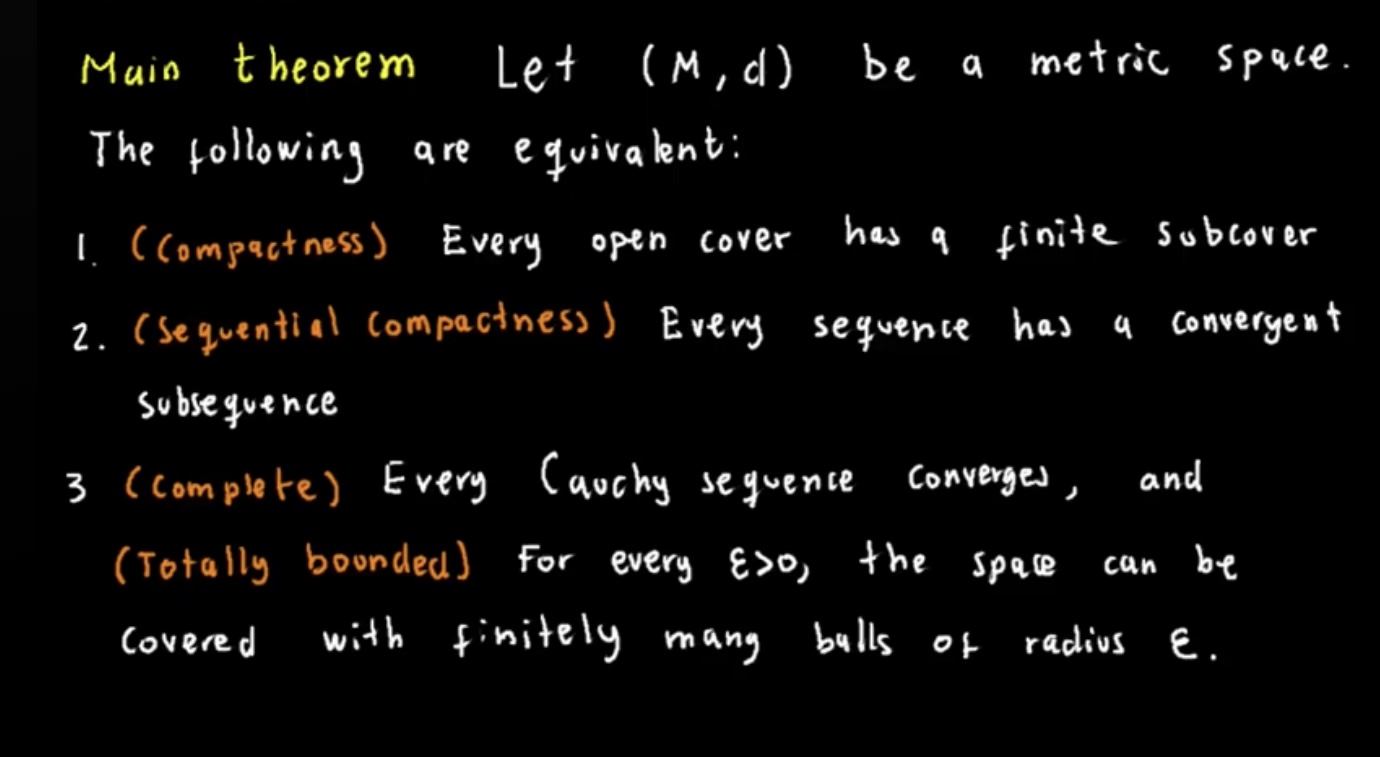 Main theorem Let (M,d) be a metric space.
The following are equivalent:
1. (Compactness) Every open cover has a finite subcover
2. (Sequential compactness) Every sequence has a convergent
subsequence
3 (Complete) Every Cauchy sequence converges, and
(Totally bounded) For every ε>0, the space can be
covered with finitely many balls of radius ε.